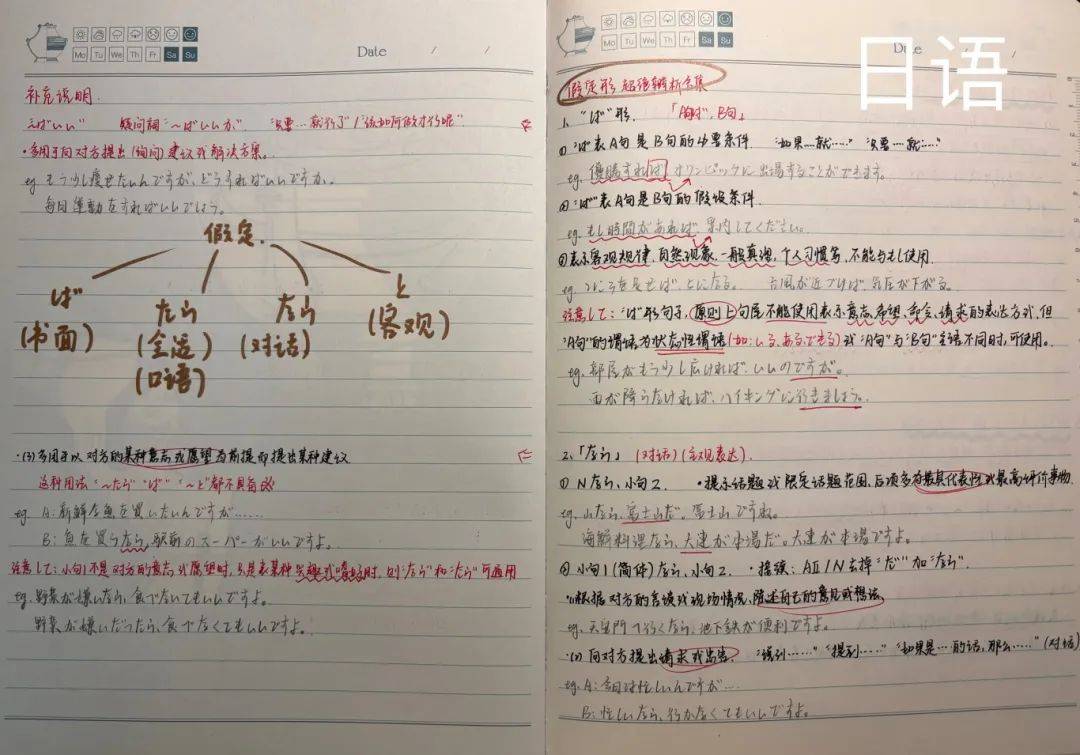 Mo Tu We Th Fr Sa Su
Date / /
补充说明.
"えばいい" 疑问词:"~ばいいか". "只要…就行了"/"该如何做才行呢"
·多用于向对方提出(询问)建议或解决方案。
eg. もう少し痩せたいんですが、どうすればいいですか。
毎日運動をすればいいでしょう。
假定.
ば
(书面)
たら
(全运)
(口语)
なら
(对话)
と
(客观)
·(3)多用于以对方的某种意志或愿望为前提而提出某种建议
这种用法"~たら""ば""~と"都不具备
eg. A:新鮮な魚を買いたいんですが……
B:魚を買うなら,駅前のスーパーがいいですよ。
注意して:小句1不是对方的意志或愿望时,只是表某种兴趣或嗜好时,则"なら"和"たら"可通用
eg. 野菜が嫌いなら、食べなくてもいいですよ。
野菜が嫌いだったら、食べなくてもいいですよ。
日语
Mo Tu We Th Fr Sa Su
Date /
假定形 超强辨析合集
1、"ば"形. 「A句ば、B句」
① "ば"表A句是B句的必要条件. "如果…就……" "只要…就……"
eg. 優勝すれば オリンピックに出場することができます。
② "ば"表A句是B句的假设条件.
eg. もし時間があれば 案内してください。
③表示客观规律,自然现象,一般真理,个人习惯等,不能与もし使用
台風が近づけば、気圧が下がる。
注意して:"ば"形句子,原则上句尾不能使用表示意志,希望,命令,请求的表达方式,但
"A句"的谓语为状态性谓语(如:いる、ある、できる)或"A句"与"B句"主语不同时,可使用。
eg. 部屋がもう少し広ければ、いいのですが。
雨が降らなければ、ハイキングに行きましょう。
2、「なら」(对话)(主观表达).
① Nなら、小句2. ·提示话题或限定话题范围,后项多为最具代表性或最高评价事物.
eg. 山なら、富士山だ。富士山ですね。
海鮮料理なら、大連が本場だ。大連が本場ですよ。
② 小句1(简体)なら、小句2. ·接续:AⅡ/N去掉"だ"加"なら".
·(1)根据对方的言谈或现场情况,陈述自己的意见或想法.
eg. 天安門へ行くなら、地下鉄が便利ですよ。
·(2)向对方提出请求或忠告. "说到……" "提到……" "如果是…的话,那么……"(对话)
eg. A:
B:忙しいなら、行かなくてもいいですよ。